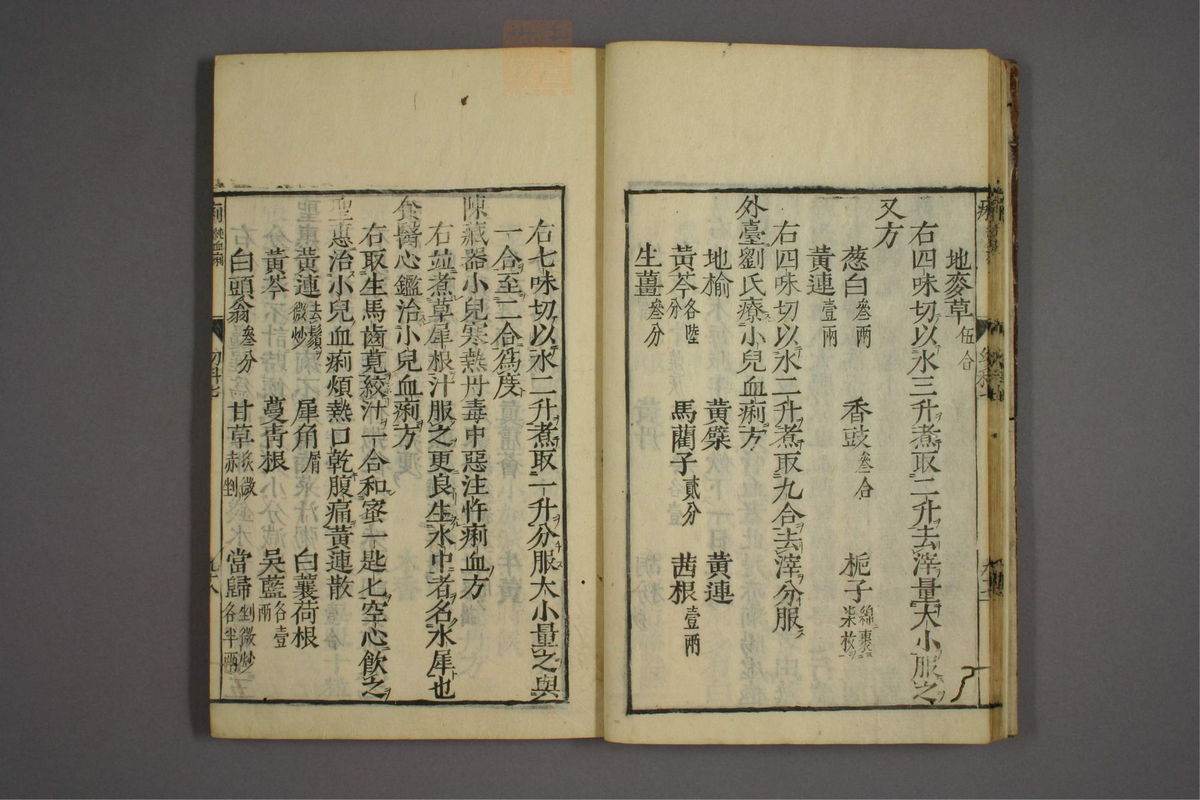 地麥草伍合
右四味切以水三升煮取二升去滓量大小服之
又方
葱白叁兩 香豉叁合 梔子綿裹柒枚
黃連壹兩
右四味切以水二升煮取九合去滓分服
外臺劉氏療小兒血痢方
地榆 黃蘗 黃連
黃芩各陸分 馬藺子貳分 茜根壹兩
生薑叁分
右七味切以水二升煮取一升分服大小量之與
一合至二合爲度
陳藏器小兒寒熱丹毒中惡注忤痢血方
右並煮草犀根汁服之更良生水中者名水犀也
食醫心鑑治小兒血痢方
右取生馬齒莧絞汁一合和蜜一匙匕空心飲之
聖惠治小兒血痢煩熱口乾腹痛黃連散
黃連去鬚微炒 犀角屑 白蘘荷根
黃芩 蔓靑根 吳藍各壹兩
白頭翁叁分 甘草炙微赤剉 當歸剉微炒各半兩